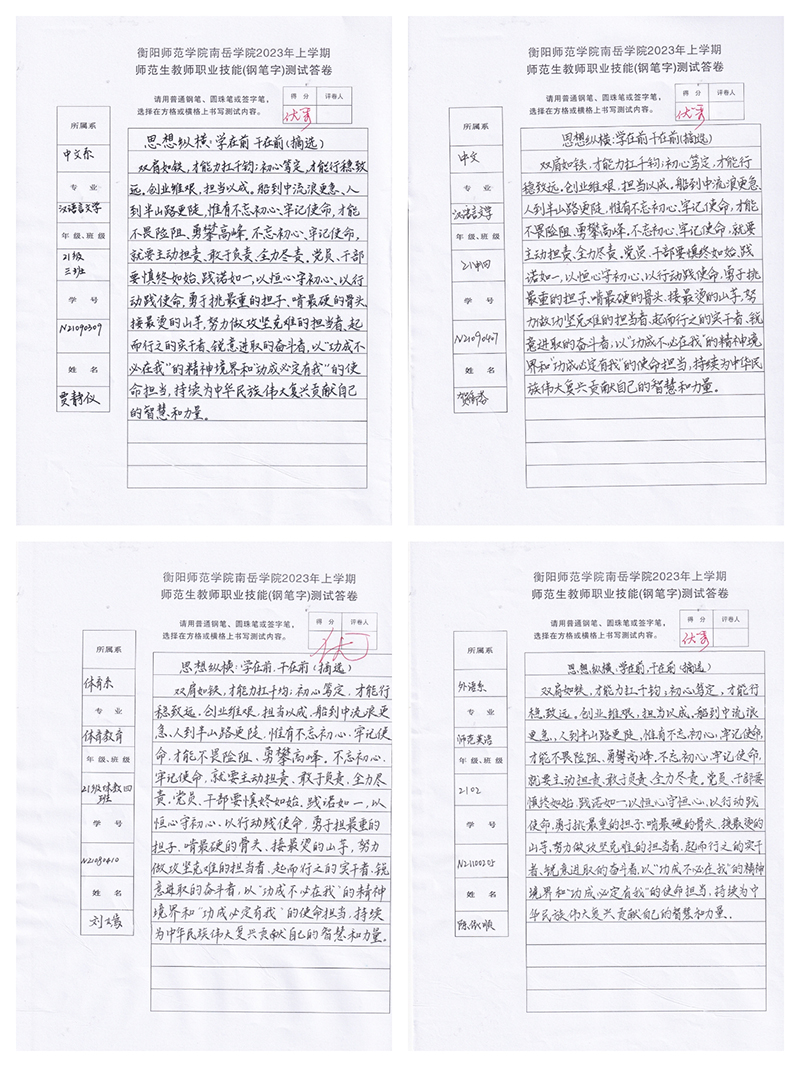 衡阳师范学院南岳学院2023年上学期
师范生教师职业技能(钢笔字)测试答卷
请用普通钢笔、圆珠笔或签字笔，
选择在方格或横格上书写测试内容。
得 分
评卷人
优秀
所属系
中文系
专 业
汉语言文学
年 级、班 级
21级
三班
学 号
N21090309
姓 名
贾静仪
思想纵横:学在前 干在前(摘选)
双肩如铁,才能力扛千钧;初心笃定,才能行稳致
远。创业维艰,担当以成。船到中流浪更急、人
到半山路更陡,惟有不忘初心、牢记使命,才能
不畏险阻、勇攀高峰。不忘初心、牢记使命,
就要主动担责、敢于负责、全力尽责。党员、干部
要慎终如始、践诺如一,以恒心守初心、以行
动践使命,勇于挑最重的担子、啃最硬的骨头、
接最烫的山芋,努力做攻坚克难的担当者、起
而行之的实干者、锐意进取的奋斗者,以“功成不
必在我”的精神境界和“功成必定有我”的使
命担当,持续为中华民族伟大复兴贡献自己
的智慧和力量。
衡阳师范学院南岳学院2023年上学期
师范生教师职业技能(钢笔字)测试答卷
请用普通钢笔、圆珠笔或签字笔，
选择在方格或横格上书写测试内容。
得 分
评卷人
优秀
所属系
中文
专 业
汉语言文学
年 级、班 级
学 号
N21090407
姓 名
思想纵横:学在前干在前(摘选)
双肩如铁,才能力扛千钧;初心笃定,才能行
稳致远。创业维艰、担当以成。船到中流浪更急、
人到半山路更陡,惟有不忘初心、牢记使命,才能
不畏险阻、勇攀高峰。不忘初心、牢记使命,就要
主动担责、敢于负责、全力尽责。党员、干部要慎终如始、践
诺如一,以恒心守初心、以行动践使命,勇于挑
最重的担子、啃最硬的骨头、接最烫的山芋,努
力做功坚克难的担当者、起而行之的实干者、锐
意进取的奋斗者,以“功成不必在我”的精神境
界和“功成必定有我”的使命担当,持续为中华民
族伟大复兴贡献自己的智慧和力量。
衡阳师范学院南岳学院2023年上学期
师范生教师职业技能(钢笔字)测试答卷
请用普通钢笔、圆珠笔或签字笔，
选择在方格或横格上书写测试内容。
得 分
评卷人
优
所属系
体育系
专 业
体育教育
年 级、班 级
21级体教四
班
学 号
N21080410
姓 名
思想纵横:学在前、干在前(摘选)
双肩如铁,才能力扛千钧;初心笃定,才能行
稳致远。创业维艰,担当以成,船到中流浪更
急、人到半山路更陡,惟有不忘初心、牢记使
命,才能不畏险阻、勇攀高峰。不忘初心、
牢记使命,就要主动担责、敢于负责、全力尽
责,党员、干部要慎终如始、践诺如一,以
恒心守初心、以行动践使命,勇于担最重的
担子、啃最硬的骨头、接最烫的山芋,努力
做攻坚克难的担当者、起而行之的实干者、锐
意进取的奋斗者,以“功成不必在我”的精神
境界和“功成必定有我”的使命担当,持续
为中华民族伟大复兴贡献自己的智慧和力量。
衡阳师范学院南岳学院2023年上学期
师范生教师职业技能(钢笔字)测试答卷
请用普通钢笔、圆珠笔或签字笔，
选择在方格或横格上书写测试内容。
得 分
评卷人
优秀
所属系
外语系
专 业
师范英语
年 级、班 级
2102
学 号
姓 名
思想纵横:学在前、干在前(摘选)
双肩如铁,才能力扛千钧;初心笃定,才能行
稳致远。创业维艰,担当以成。船到中流浪
更急、人到半山路更陡,惟有不忘初心、牢记使命,
才能不畏险阻、勇攀高峰。不忘初心、牢记使命,
就要主动担责、敢于负责、全力尽责。党员、干部要
慎终如始、践诺如一,以恒心守恒心、以行动践
使命,勇于挑最重的担子、啃最硬的骨头、接最烫的
山芋,努力做攻坚克难的担当者、起而行之的实干
者、锐意进取的奋斗者,以“功成不必在我”的精神
境界和“功成必定有我”的使命担当,持续为中
华民族伟大复兴贡献自己的智慧和力量。